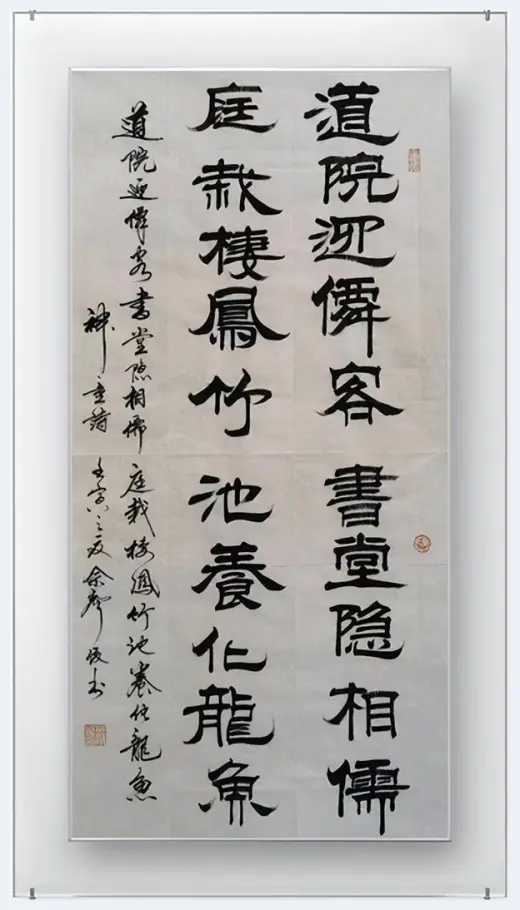 道院迎僊客書堂隐相儒
庭栽棲鳳竹池養化龍魚
道院迎僊客書堂隐相儒庭栽棲鳳竹池養化龍魚
神童詩 壬寅之夏 余